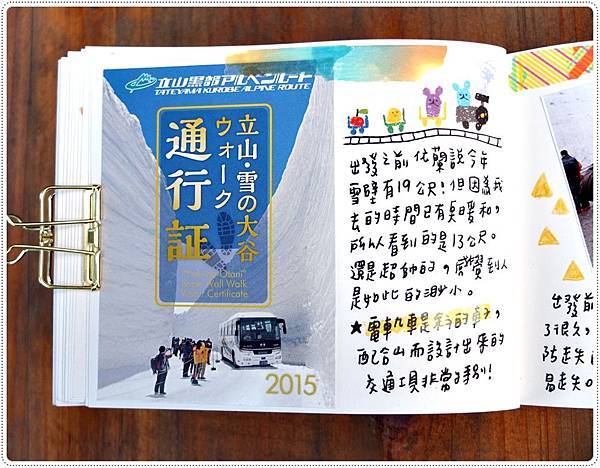 立山黒部アルペンルート
TATEYAMA KUROBE ALPINE ROUTE
立山・雪の大谷
ウォーク
通行証
"Yuki-no-Otani"
Snow Wall Walk
Pass Certificate
2015
出發之前依蘭說今年
雪壁有19公尺！但因為我
去的時間已有点暖和，
所以看到的是13公尺。
還是超帥的，感覺到人
是如此的渺小。
★電車九車是斜的車子，
配合山而設計出來的
交通工具非常的特別！
出發前
了很久，
防走失
易走失。